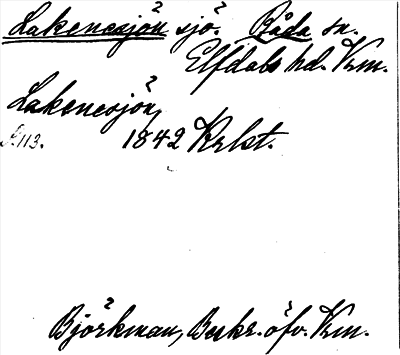 Lakenesjön sjö. Råda sn.
Elfdals hd. Vrm.
Lakenesjön
S. 113. 1842 Krlst.
Björkman, Beskr. öfv. Vrm.